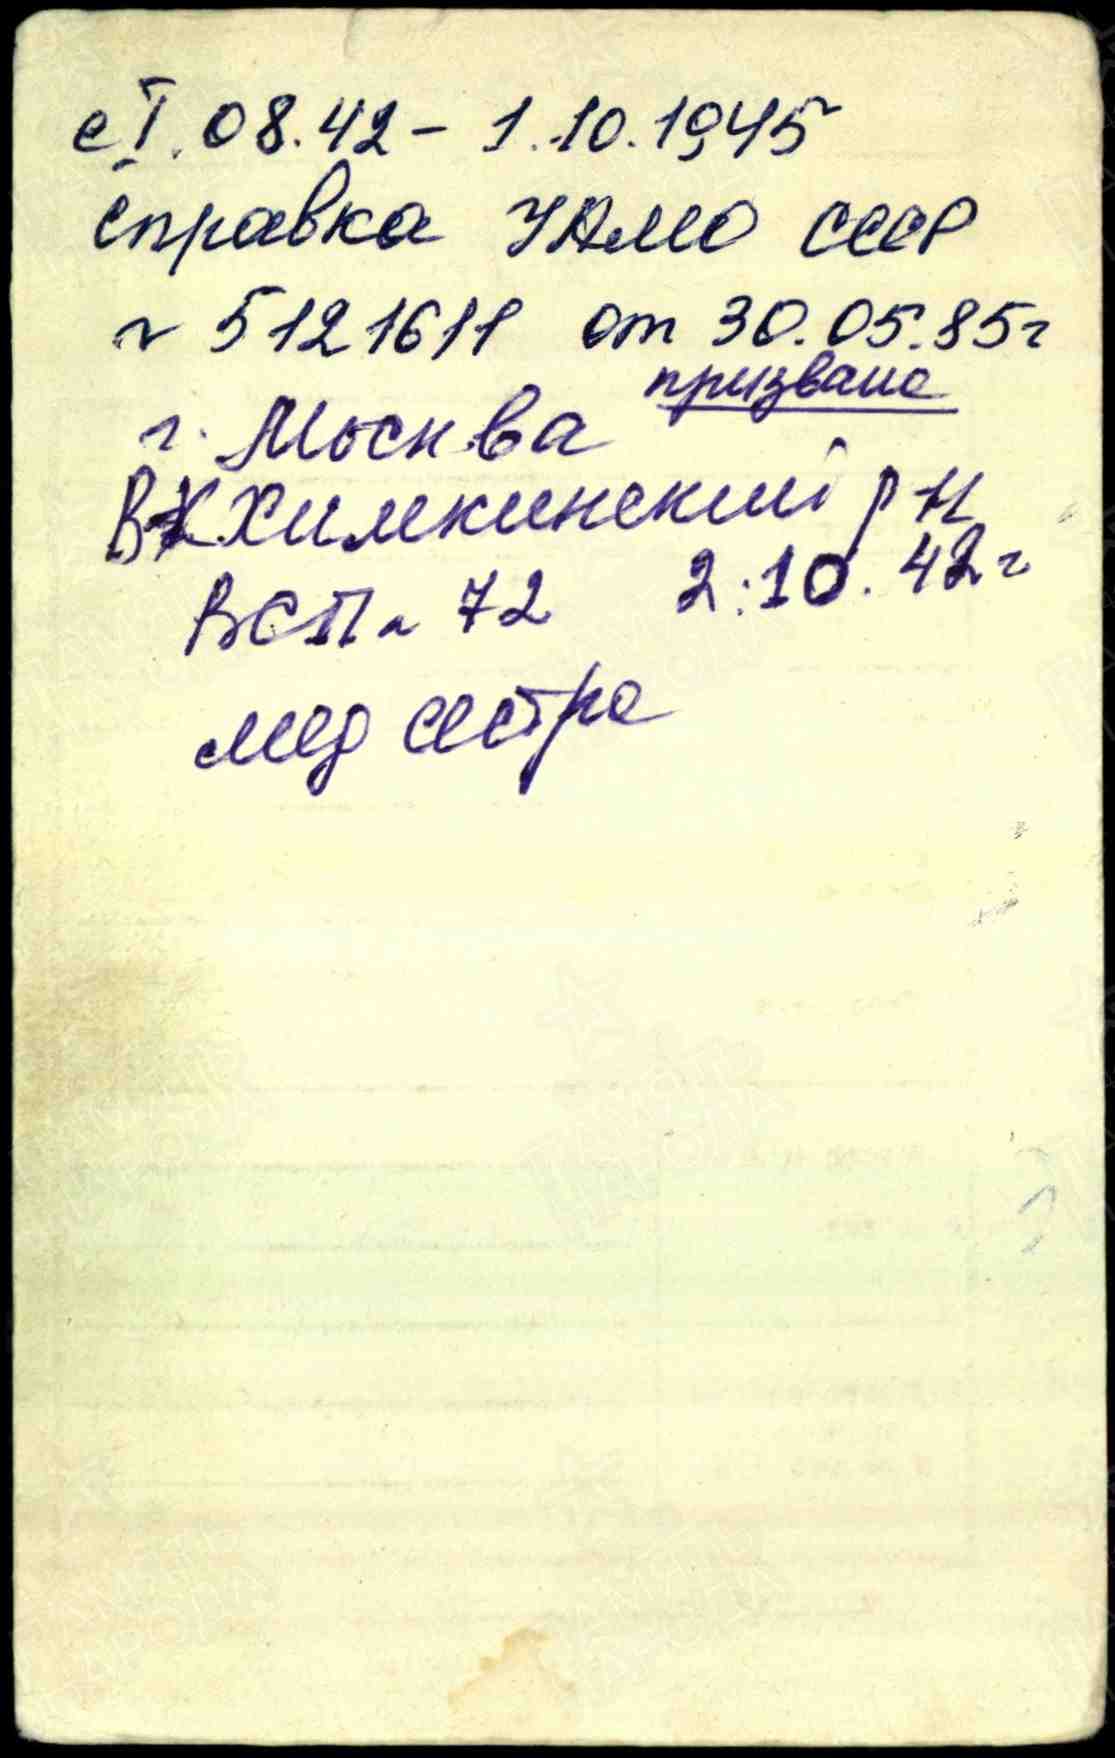 с I. 08.42 – 1.10.1945
справка ЦАМО СССР
№ 5121611 от 30.05.85г
призвана
г. Москва
ВК Химкинский р-н
ВСП № 72 2.10.42г
мед сестра